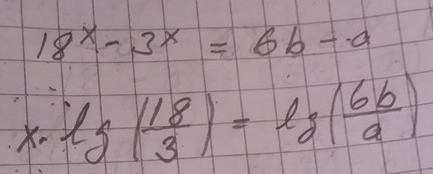 18^x - 3^x = 6b - a
x · lg(18/3) = lg(6b/a)